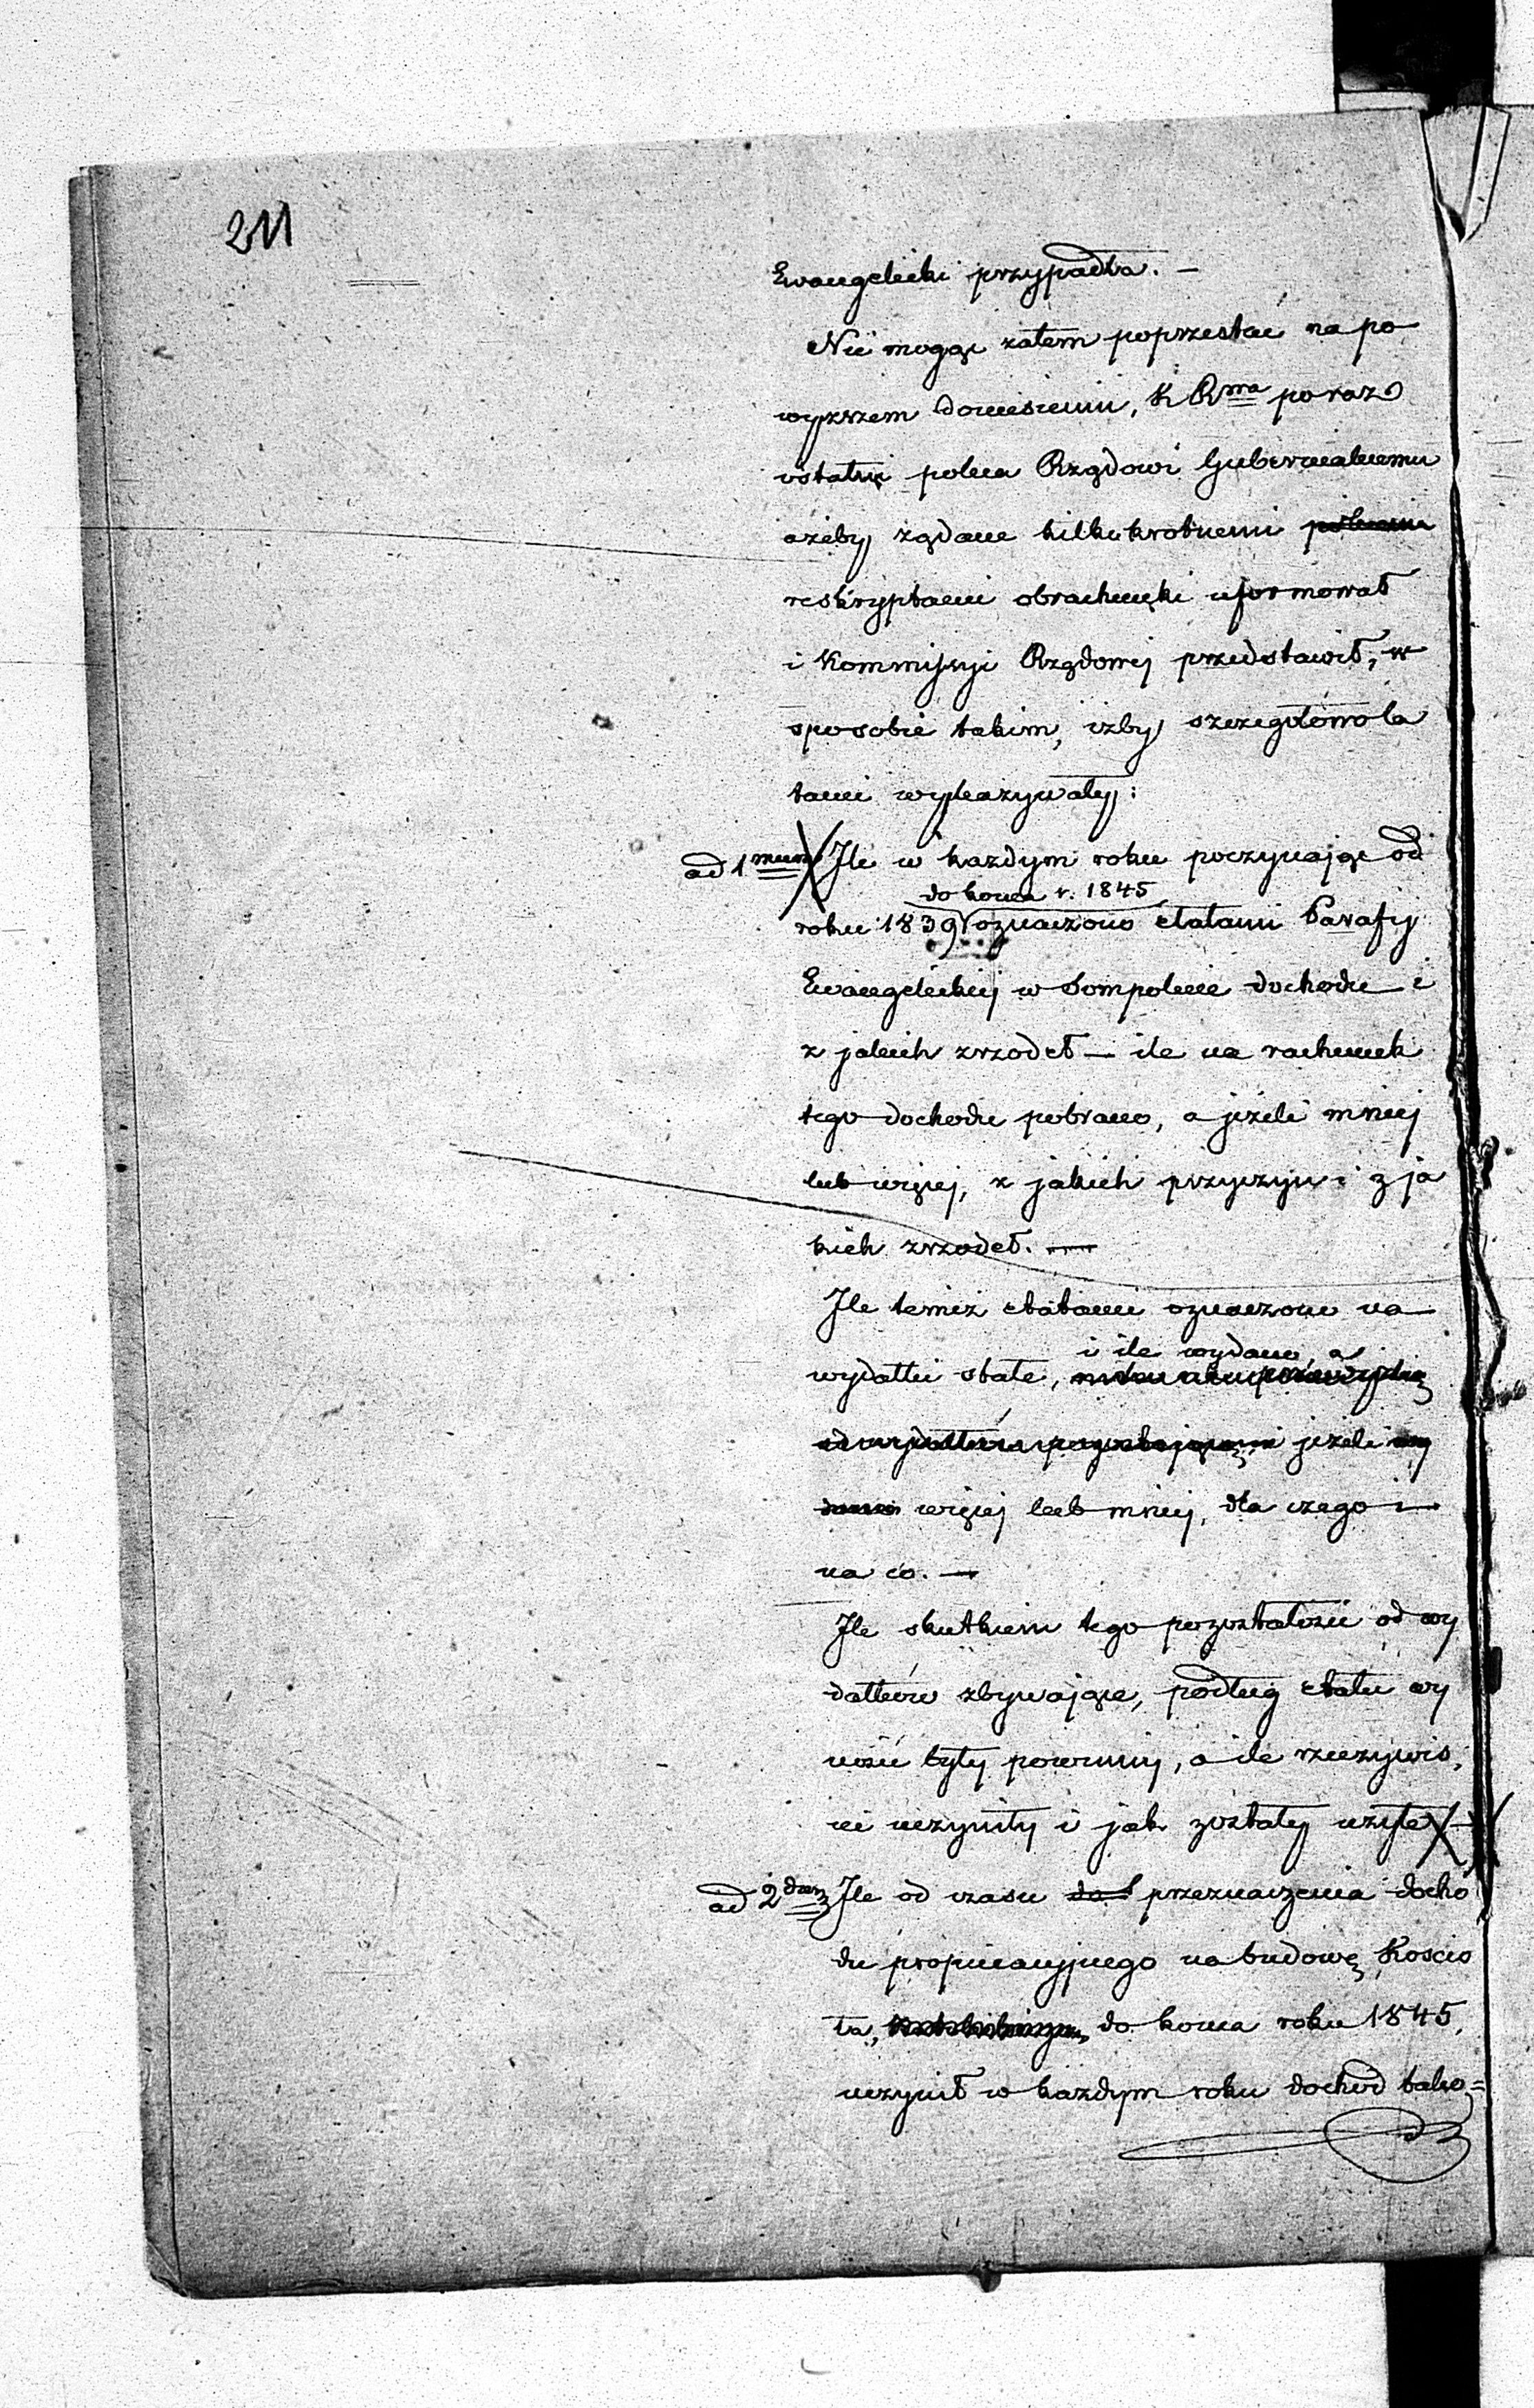 211
Ewangelicki przypadła. —
Nie mogąc zatem poprzestać na po
wyższem doniesieniu, K R wa po raz
ostatni poleca Rządowi Gubernialnemu
ażeby żądane kilkakrotnemi
reskryptami obrachunki uformował
i Kommissyi Rządowej przedstawił, w
sposobie takim, iżby szczegółowo la
tami wykazywały:
ad 1 mum Ile w każdym roku poczynając od
do końca r. 1845
roku 1839 oznaczono etatami Parafij
Ewangelickiej w Sompolnie dochodu i
z jakich zrzodeł — ile na rachunek
tego dochodu pobrano, a jeżeli mniej
lub więcej, z jakich przyczyn i z ja
kich zrzodeł. —
Ile temiż etatami oznaczono na
i ile wydano, a
wydatki stałe,
jeżeli
więcej lub mniej, dla czego i
na co. —
Ile skutkiem tego pozostałości od wy
datków zbywające, podług etatu wy
nosić były powinny, a ile rzeczywiś,
cie uczyniły i jak zostały użyte —
ad 2 dum Ile od czasu do przeznaczenia docho
du propinacyjnego na budowę Koscio
ła, do końca roku 1845,
uczynił w każdym roku dochód tako=